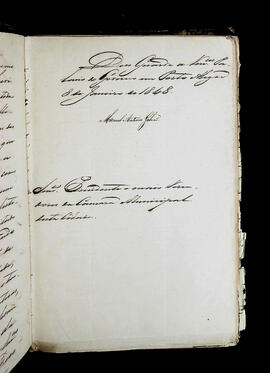 Deos Guarde a Vm.ces Pa-
lacio do Governo em Porto Alegre
8 de Janeiro de 1848.
Manoel Antonio
Snr.es Presidente e mais Vere-
adores da Camara Municipal
desta Cidade.